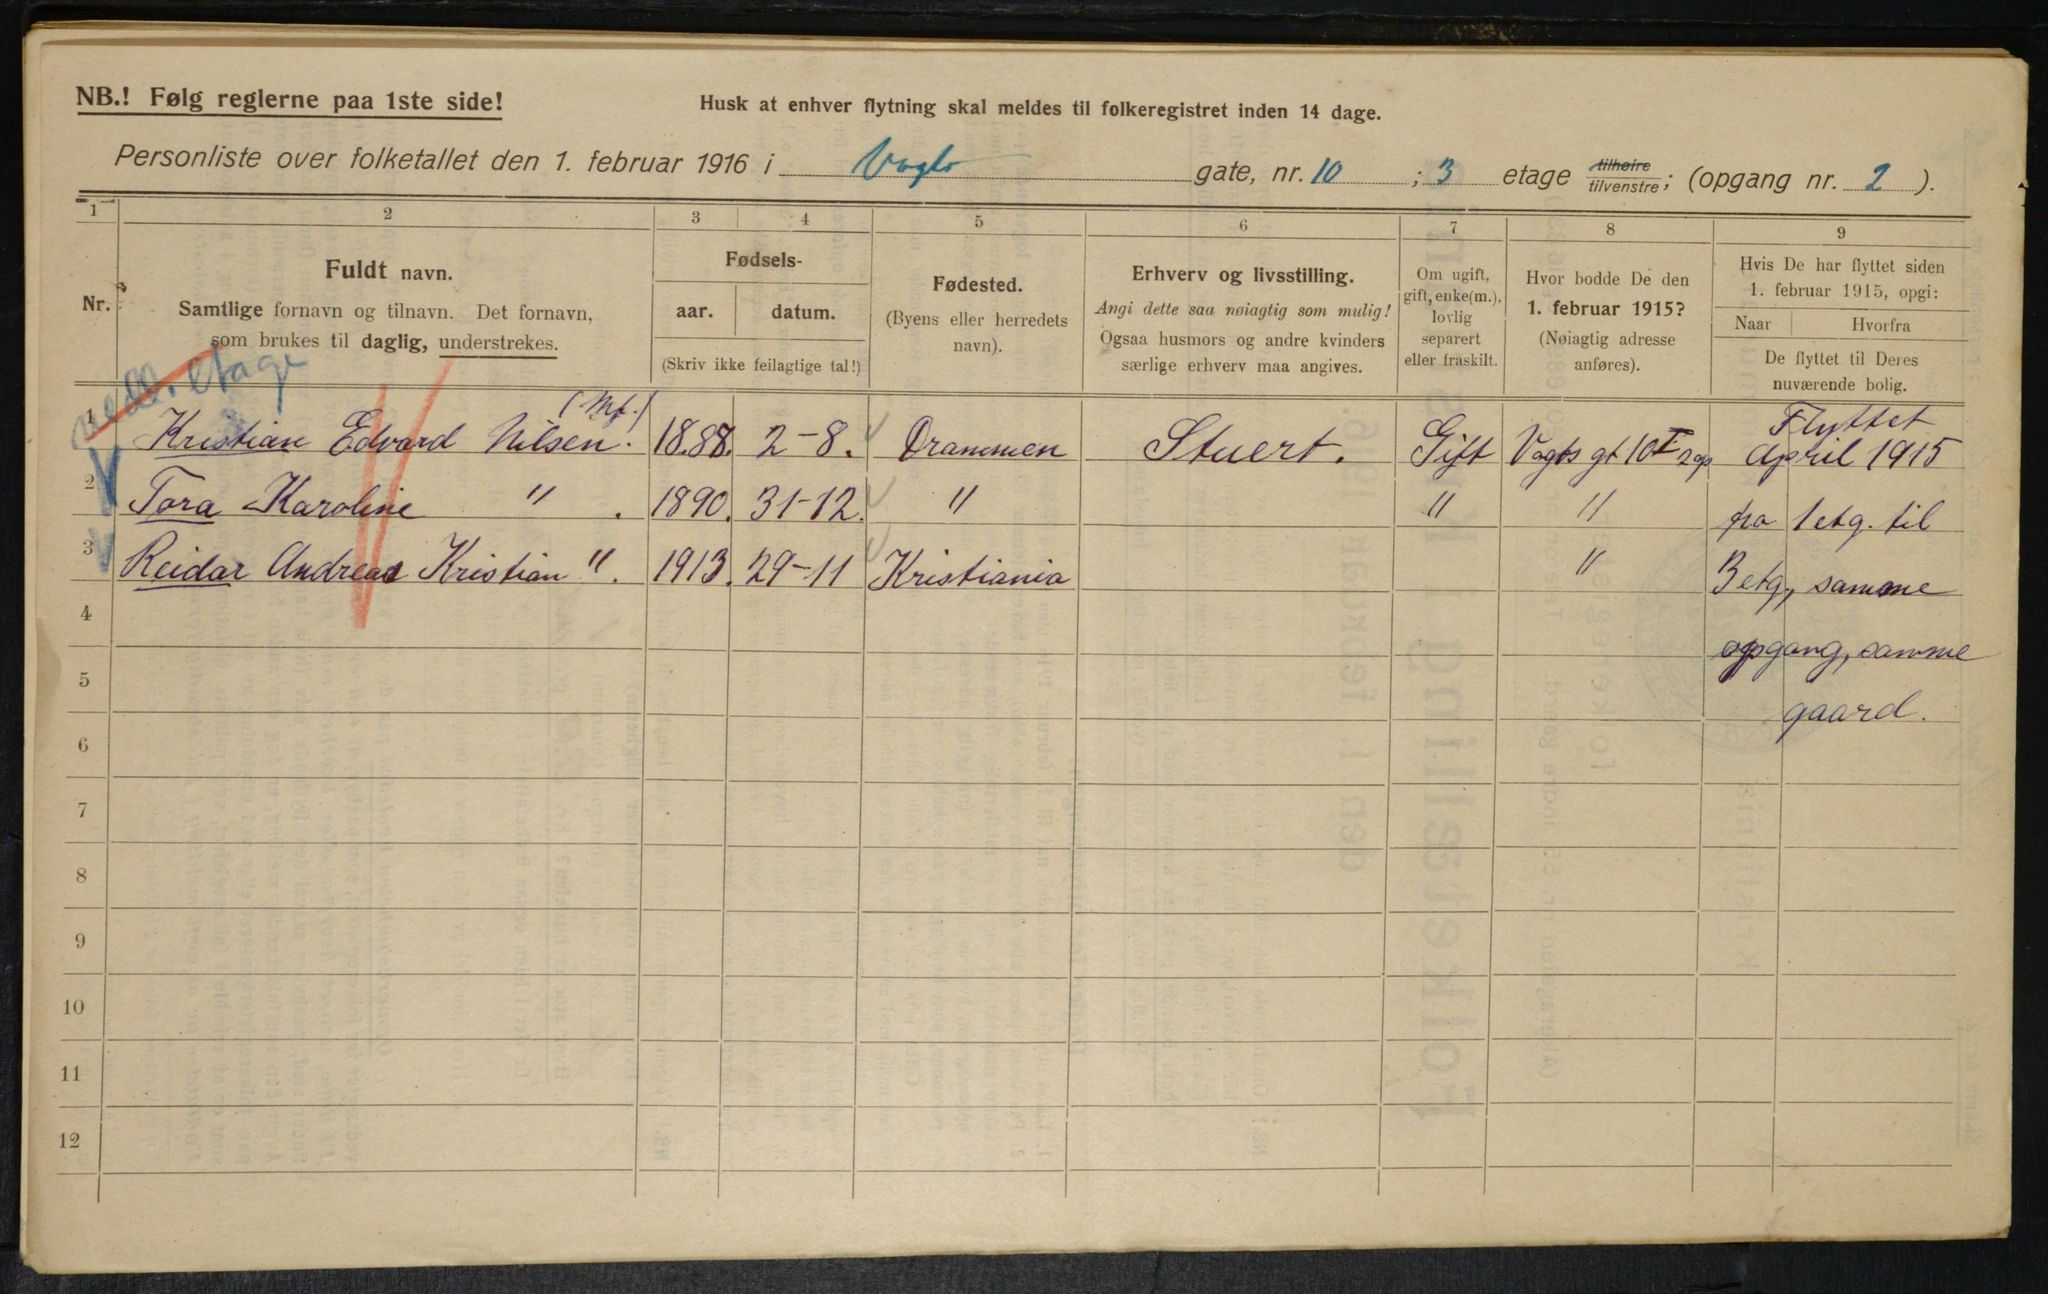 NB.! Følg reglerne paa 1ste side!
Husk at enhver flytning skal meldes til folkeregistret inden 14 dage.
Personliste over folketallet den 1. februar 1916 i Vogts gate, nr. 10 ; 3 etage tilhøire tilvenstre; (opgang nr. 2 ).
1 2 3 4 5 6 7 8 9
Nr.
Fuldt navn.
Samtlige fornavn og tilnavn. Det fornavn,
som brukes til daglig, understrekes.
Fødsels-
aar. datum.
(Skriv ikke feilagtige tal!)
Fødested.
(Byens eller herredets
navn).
Erhverv og livsstilling.
Angi dette saa nøiagtig som mulig!
Ogsaa husmors og andre kvinders
særlige erhverv maa angives.
Om ugift,
gift, enke(m.),
lovlig
separert
eller fraskilt.
Hvor bodde De den
1. februar 1915?
(Nøiagtig adresse
anføres).
Hvis De har flyttet siden
1. februar 1915, opgi:
Naar Hvorfra
De flyttet til Deres
nuværende bolig.
etage
(Mf.) Flyttet
1 Kristian Edvard Nilsen. 1888. 2-8. Drammen Stuert. Gift Vogts gt 10 I 2 op April 1915
2 Tora Karoline " . 1890. 31-12. " " " fra 1 etg. til
3 Reidar Andreas Kristian ". 1913. 29-11 Kristiania " 3 etg, samme
4 opgang, samme
5 gaard.
6
7
8
9
10
11
12